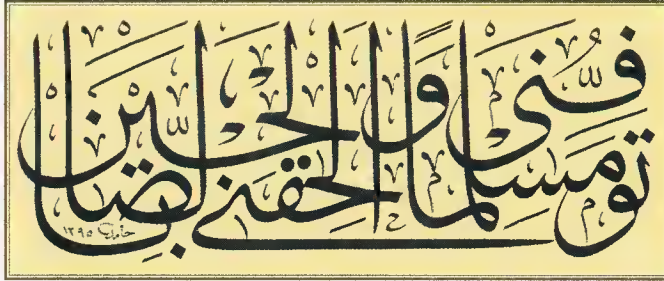 توفني مسلما وألحقني بالصالحين
حامد ١٣٩٥